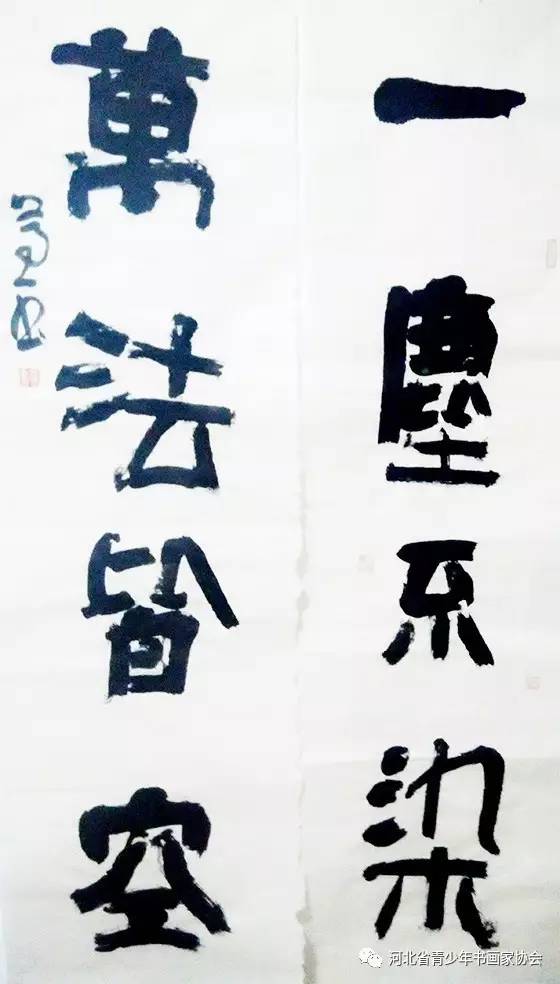 一塵不染
萬法皆空
河北省青少年书画家协会